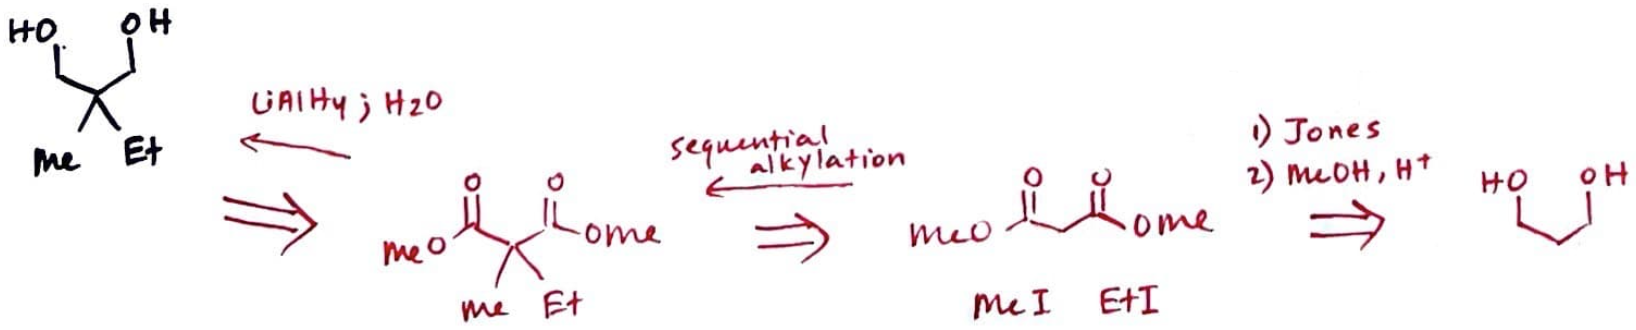 HO OH
Me Et
LiAlH4 ; H2O
O O
MeO OMe
Me Et
sequential
alkylation
O O
MeO OMe
MeI EtI
1) Jones
2) MeOH, H+
HO OH